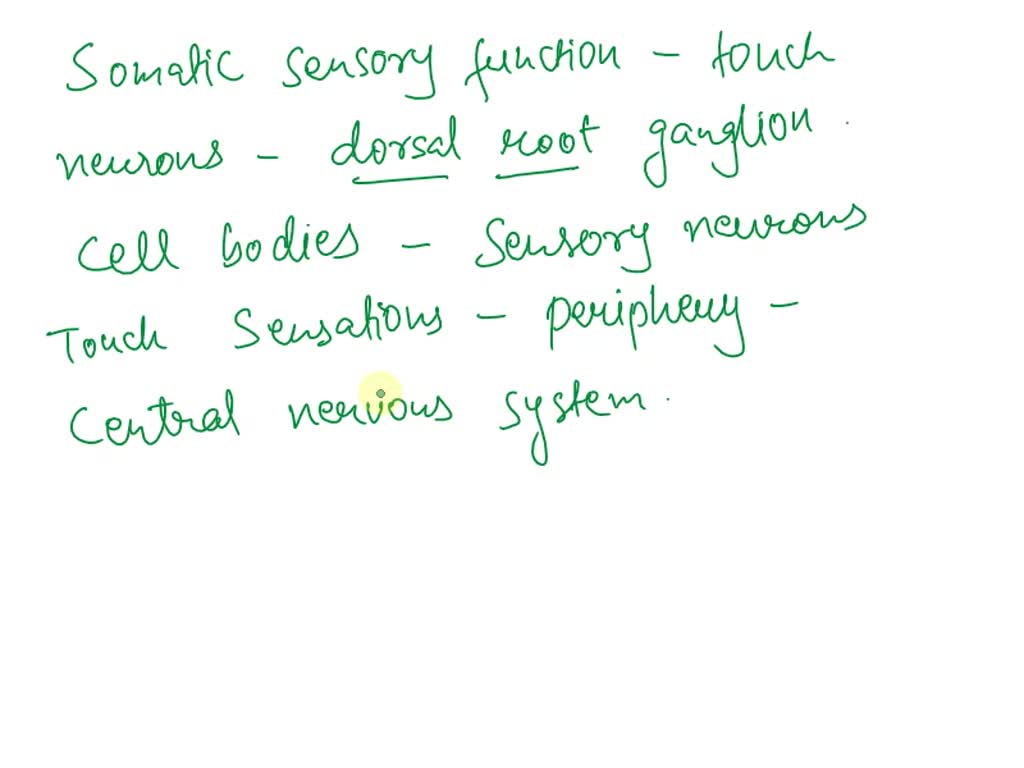 Somatic sensory function - touch
neurons - dorsal root ganglion.
Cell bodies - Sensory neurons
Touch Sensations - periphery -
Central nervous system.